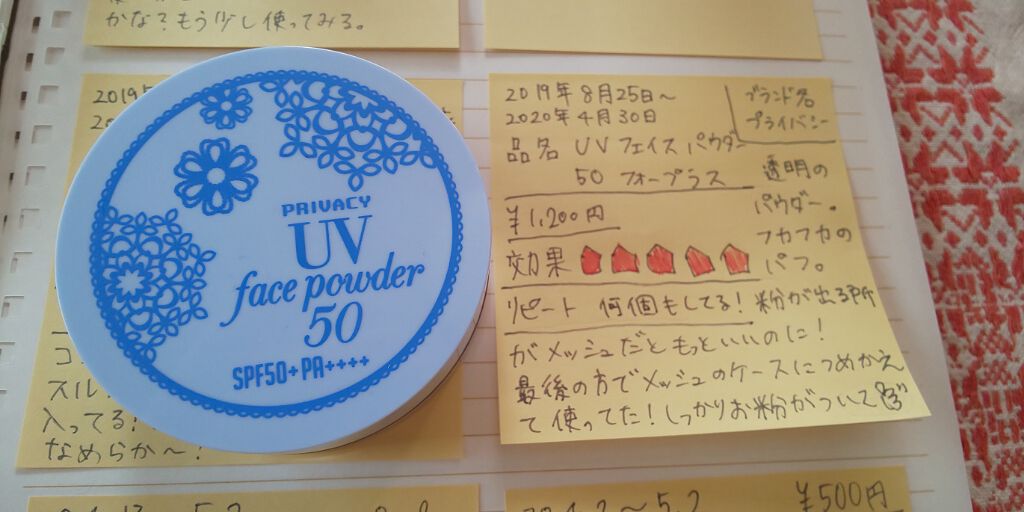 かな?もう少し使ってみる。
2019年
PRIVACY
UV
face powder
50
SPF50+PA++++
スル
入ってる!
なめらか〜!
2019年8月25日〜
2020年4月30日
ブランド名
プライバシー
品名 UVフェイスパウダー
50 フォープラス
¥1,200円
効果
リピート 何個もしてる!
透明の
パウダー。
フカフカの
パフ。
粉が出る所
がメッシュだともっといいのに!
最後の方でメッシュのケースにつめかえ
て使ってた!しっかりお粉がついて
¥500円